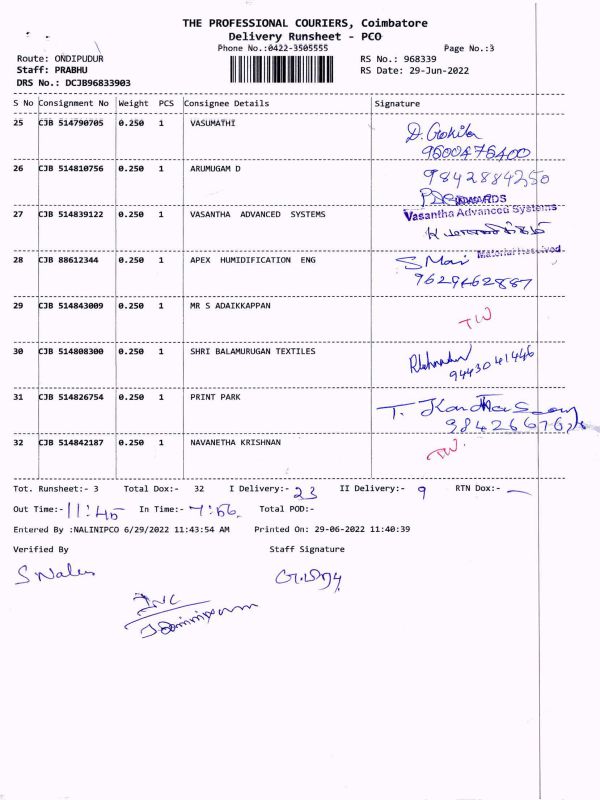 THE PROFESSIONAL COURIERS, Coimbatore
Delivery Runsheet - PCO
Phone No.:0422-3505555 Page No.:3
Route: ONDIPUDUR RS No.: 968339
Staff: PRABHU RS Date: 29-Jun-2022
DRS No.: DCJB96833903
S No Consignment No Weight PCS Consignee Details Signature
25 CJB 514790705 0.250 1 VASUMATHI
26 CJB 514810756 0.250 1 ARUMUGAM D
9842884250
27 CJB 514839122 0.250 1 VASANTHA ADVANCED SYSTEMS
Vasantha Advanced Systems
28 CJB 88612344 0.250 1 APEX HUMIDIFICATION ENG
S Mari Material Received
9629462887
29 CJB 514843009 0.250 1 MR S ADAIKKAPPAN
30 CJB 514808300 0.250 1 SHRI BALAMURUGAN TEXTILES
9443041446
31 CJB 514826754 0.250 1 PRINT PARK
32 CJB 514842187 0.250 1 NAVANETHA KRISHNAN
Tot. Runsheet:- 3 Total Dox:- 32 I Delivery:- 23 II Delivery:- 9 RTN Dox:- —
Out Time:- 11:45 In Time:- Total POD:-
Entered By :NALINIPCO 6/29/2022 11:43:54 AM Printed On: 29-06-2022 11:40:39
Verified By Staff Signature